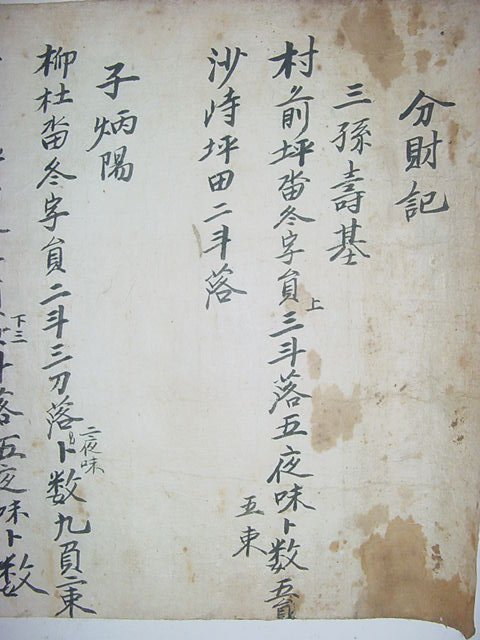 分財記
三孫壽基
村前坪畓冬字員上三斗落五夜味卜数五負
五束
沙峙坪田二斗落
子炳陽
柳杜畓冬字員二斗三刀落三夜味卜数九負二束
下三斗落五夜味卜数